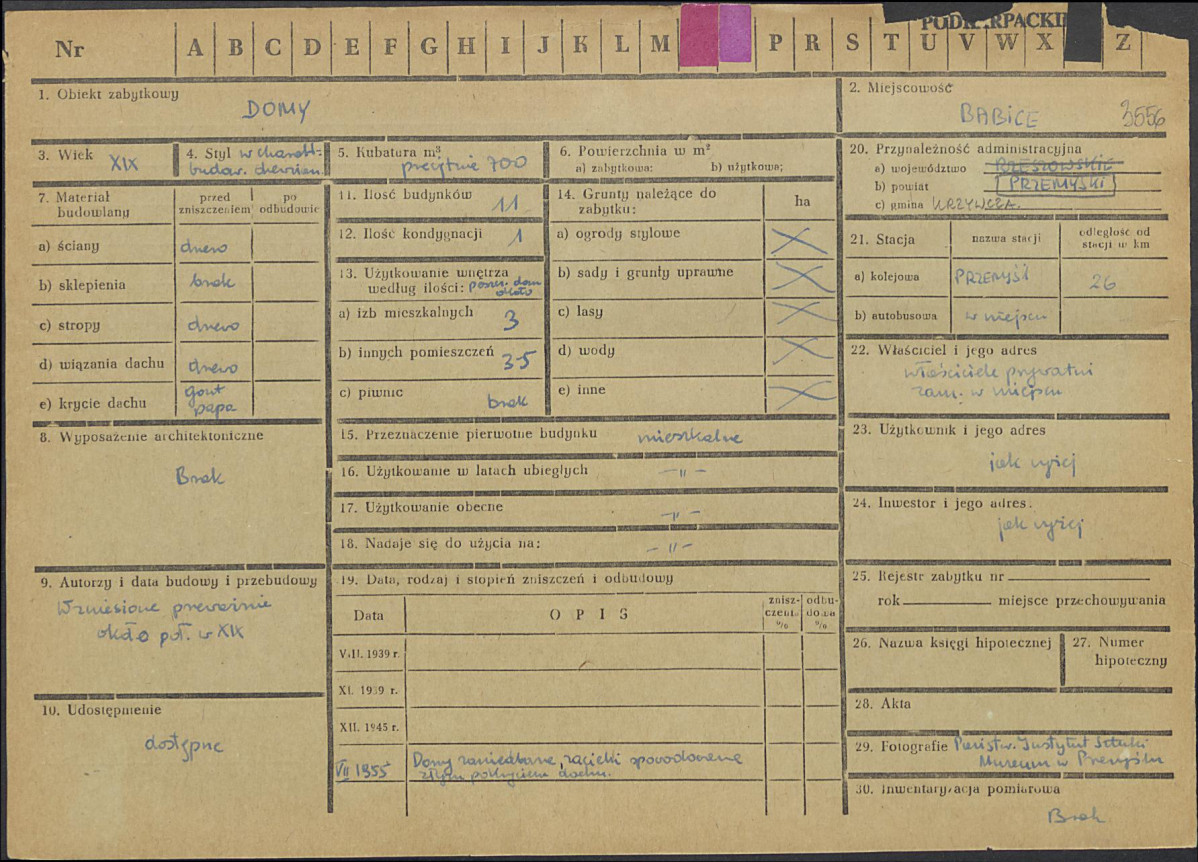 PODKARPACKI
Nr A B C D E F G H I J K L M P R S T U V W X Z
1. Obiekt zabytkowy
DOMY
2. Miejscowość
BABICE 3556
3. Wiek XIX
4. Styl w charakt.
budow. drewnian.
5. Kubatura m³
przeciętnie 700
6. Powierzchnia w m²
a) zabytkowa: b) użytkowa:
20. Przynależność administracyjna
a) województwo RZESZOWSKIE
b) powiat PRZEMYSKI
c) gmina KRZYWCZA.
7. Materiał budowlany
przed zniszczeniem
po odbudowie
a) ściany drewo
b) sklepienia brak
c) stropy drewo
d) wiązania dachu drewo
e) krycie dachu gont
papa
11. Ilość budynków 11
12. Ilość kondygnacji 1
13. Użytkowanie wnętrza
według ilości: poszcz. dom
około
a) izb mieszkalnych 3
b) innych pomieszczeń 3-5
c) piwnic brak
14. Grunty należące do
zabytku:
ha
a) ogrody stylowe
b) sady i grunty uprawne
c) lasy
d) wody
e) inne
21. Stacja
nazwa stacji
odległość od
stacji w km
a) kolejowa PRZEMYŚL 26
b) autobusowa w miejscu
22. Właściciel i jego adres
właściciele prywatni
zam. w miejscu
8. Wyposażenie architektoniczne
Brak
15. Przeznaczenie pierwotne budynku mieszkalne
16. Użytkowanie w latach ubiegłych — " —
17. Użytkowanie obecne — " —
18. Nadaje się do użycia na: — " —
23. Użytkownik i jego adres
jak wyżej
24. Inwestor i jego adres.
jak wyżej
9. Autorzy i data budowy i przebudowy
Wzniesione przeważnie
około poł. w XIX
19. Data, rodzaj i stopień zniszczeń i odbudowy
Data
OPIS
znisz-
czenia
%
odbu-
dowa
%
VIII. 1939 r.
XI. 1939 r.
XII. 1945 r.
VII 1955 Domy zaniedbane, zacieki spowodowane
złym pokryciem dachu.
25. Rejestr zabytku nr
rok miejsce przechowywania
26. Nazwa księgi hipotecznej
27. Numer
hipoteczny
10. Udostępnienie
dostępne
28. Akta
29. Fotografie Państw. Instytut Sztuki
Muzeum w Przemyślu
30. Inwentaryzacja pomiarowa
Brak